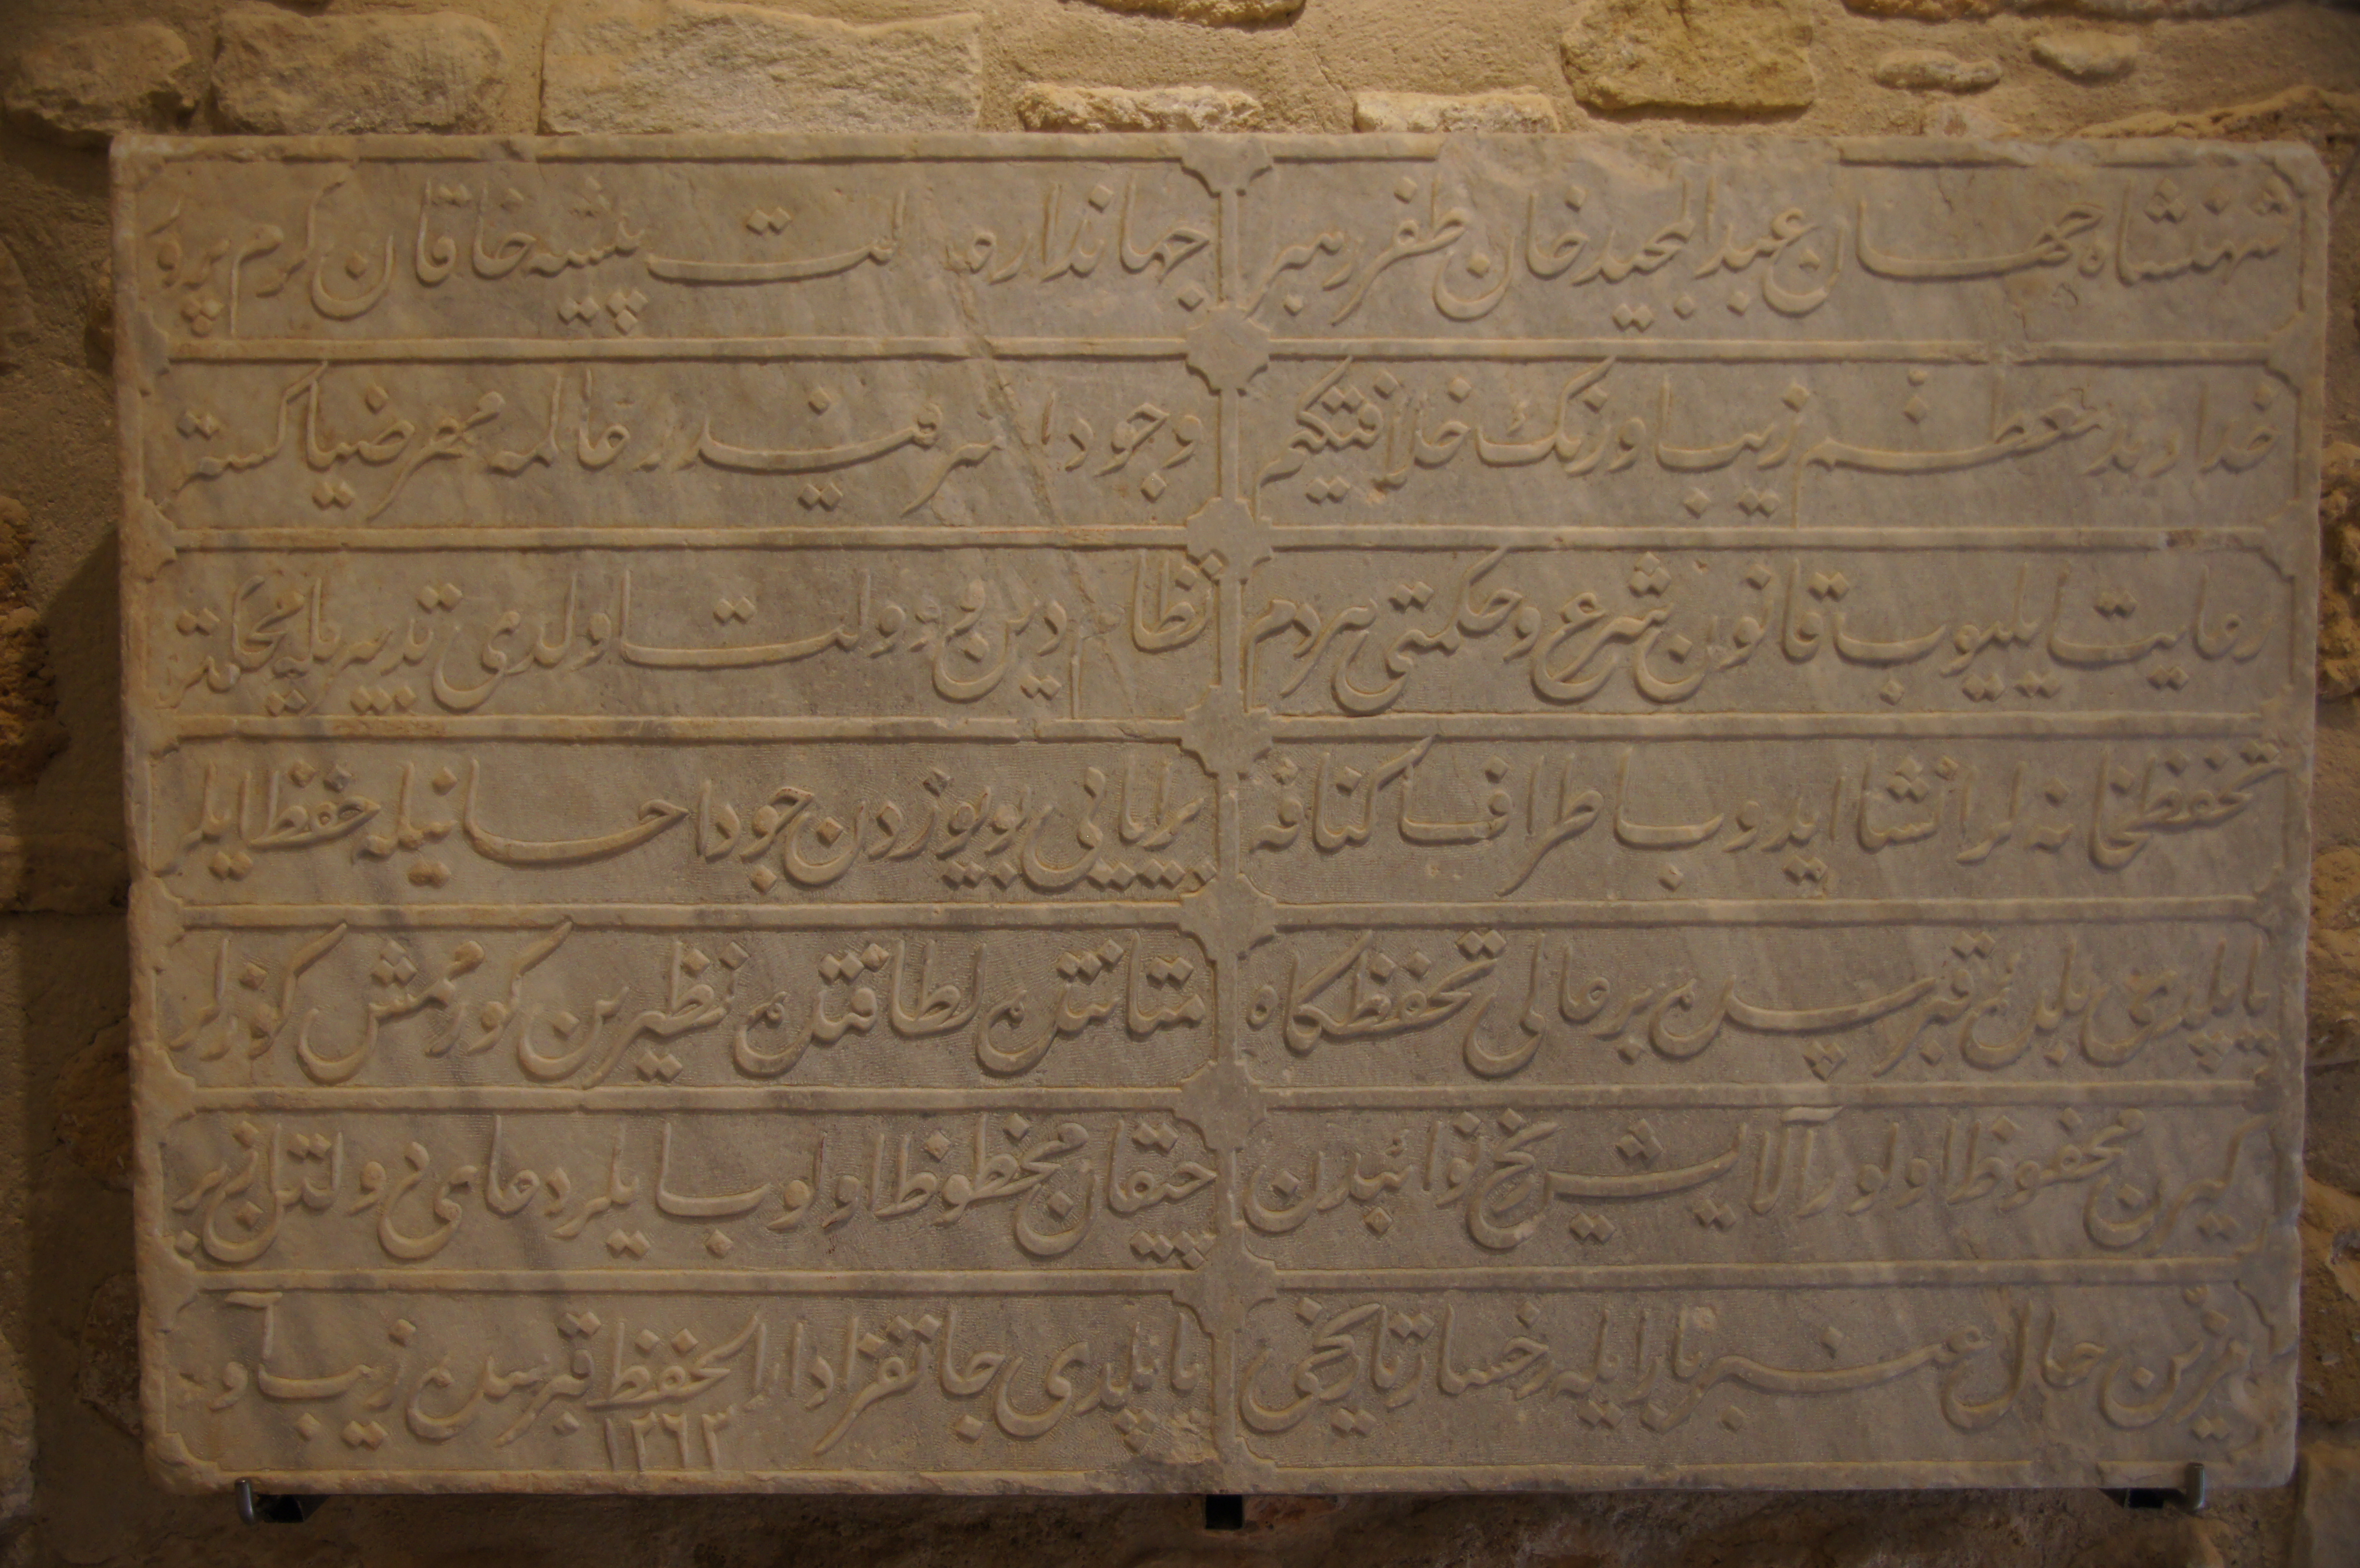 شهنشاه جهان عبدالمجید خان ظفر رهبر
جهاندار عدالت پیشه خاقان کرم پرور
معظم زیب اورنک خلافتیکم
وجود اشرفیدر عالمه مهر ضیا کستر
رعایت ایلیوب قانون شرع و حکمتی هردم
نظام دین و دولت اولدی تدبیریله محکمتر
تحفظخانه لر انشا ایدوب اطراف اکنافه
برایانی بویوزدن جود احسانیله حفظ ایلر
یاپلدی بلدهٔ قبرسده بر عالی تحفظکاه
متانتده لطافتده نظیرین کورممش کوزلر
کیرن محفوظ اولور آلایش نخ نوائبدن
چیقان محظوظ اولوب ایلر دعای دولتن ازبر
حال عنبر بار ایله رخسار تاریخی
یاپلدی جانفزا دار الحفظ قبرسده زیب آور
١٢٦٣